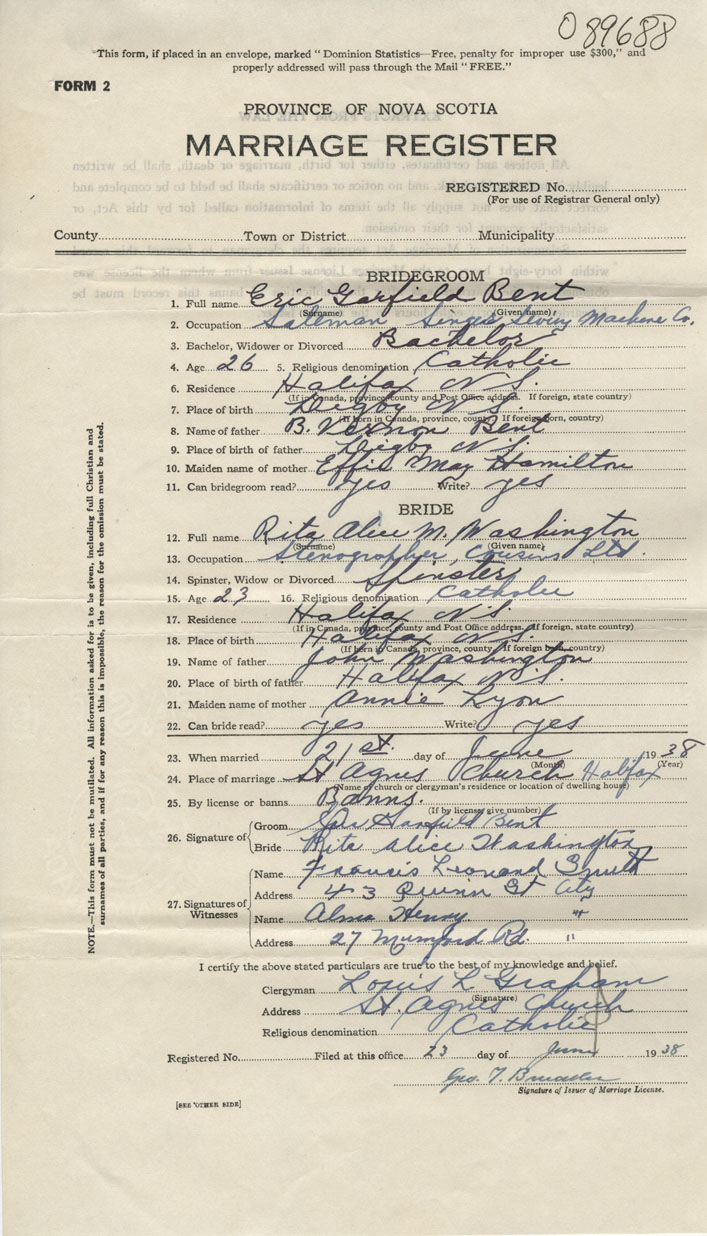 089688
"This form, if placed in an envelope, marked "Dominion Statistics—Free, penalty for improper use $300," and
properly addressed will pass through the Mail "FREE."
FORM 2
PROVINCE OF NOVA SCOTIA
MARRIAGE REGISTER
REGISTERED No.
(For use of Registrar General only)
County Town or District Municipality
BRIDEGROOM
1. Full name Eric Garfield Bent
(Surname) (Given name)
2. Occupation Saleman Singer Sewing Machine Co.
3. Bachelor, Widower or Divorced Bachelor
4. Age 26 5. Religious denomination Catholic
6. Residence Halifax N.S.
(If in Canada, province, county and Post Office address. If foreign, state country)
7. Place of birth Digby N.S.
(If born in Canada, province, county. If foreign born, country)
8. Name of father B. Vernon Bent
9. Place of birth of father Digby N.S.
10. Maiden name of mother Effie May Hamilton
11. Can bridegroom read? yes Write? yes
BRIDE
12. Full name Rita Alice M. Washington
(Surname) (Given name)
13. Occupation Stenographer, Cousins Ltd.
14. Spinster, Widow or Divorced Spinster
15. Age 23 16. Religious denomination Catholic
17. Residence Halifax N.S.
(If in Canada, province, county and Post Office address. If foreign, state country)
18. Place of birth Halifax N.S.
(If born in Canada, province, county. If foreign born, country)
19. Name of father John Washington
20. Place of birth of father Halifax N.S.
21. Maiden name of mother Annie Lyon
22. Can bride read? yes Write? yes
23. When married 21st. day of June 1938
(Month) (Year)
24. Place of marriage St Agnes Church Halifax
(Name of church or clergyman's residence or location of dwelling house)
25. By license or banns Banns.
(If by license, give number)
26. Signature of Groom Garfield Bent
Bride Rita Alice Washington
27. Signatures of Witnesses Name Francis Leonard Smith
Address 43 Quinn St City
Name Alma Henry "
Address 27 Mumford Rd. "
I certify the above stated particulars are true to the best of my knowledge and belief.
Clergyman Louis L Graham
(Signature)
Address St. Agnes Church
Religious denomination Catholic
Registered No. Filed at this office 23 day of June 1938
Geo. T.
Signature of Issuer of Marriage License.
[SEE OTHER SIDE]
NOTE.—This form must not be mutilated. All information asked for is to be given, including full Christian and
surnames of all parties, and if for any reason this is impossible, the reason for the omission must be stated.